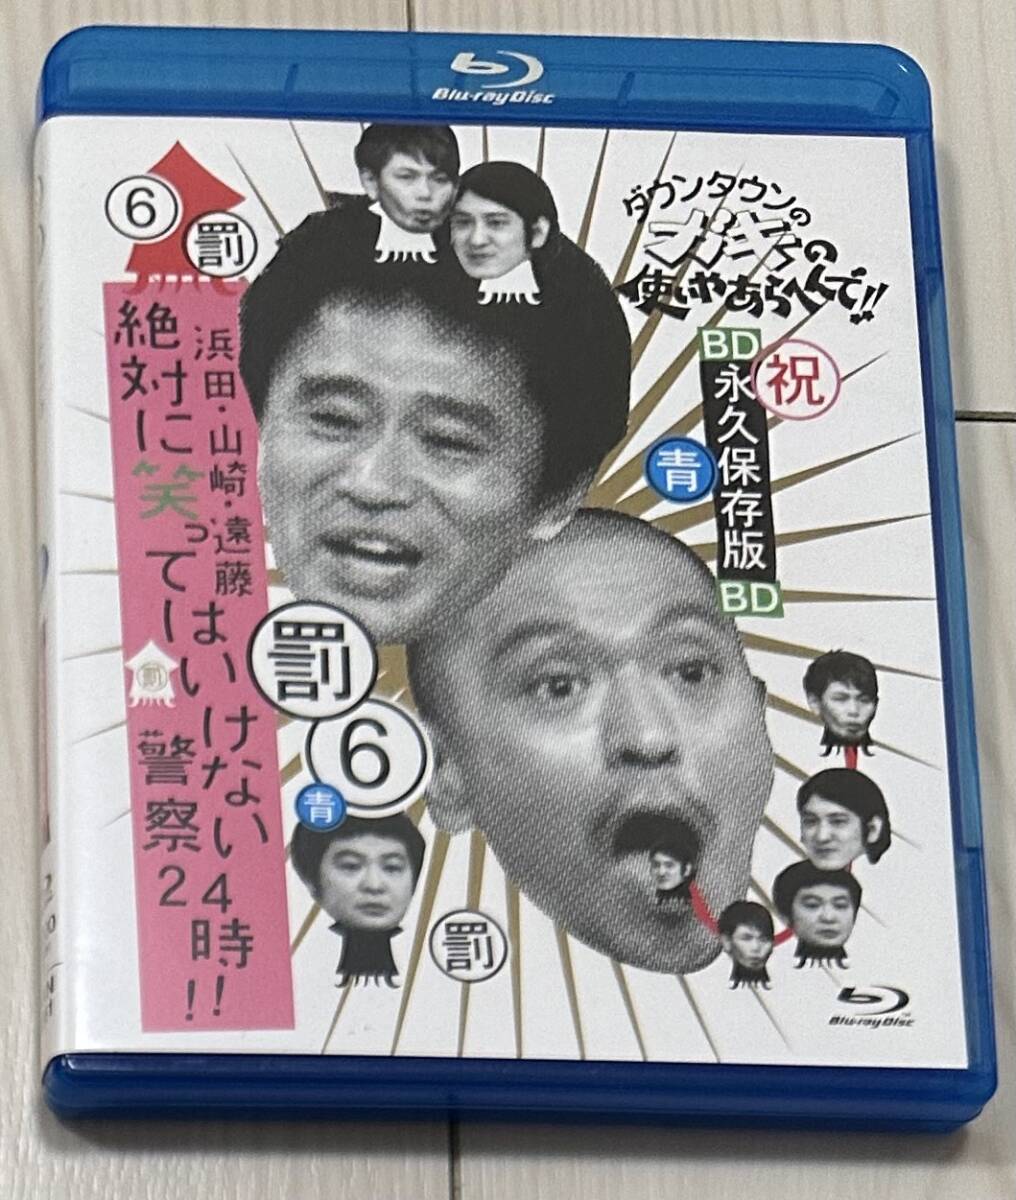 Blu-ray Disc
6
罰
浜田・山崎・遠藤
絶対に笑ってはいけない
警察24時!!
罰
ダウンタウンの
ガキの
使いやあらへんで!!
BD
永久保存版
BD
祝
青
罰
6
青
罰
Blu-ray Disc